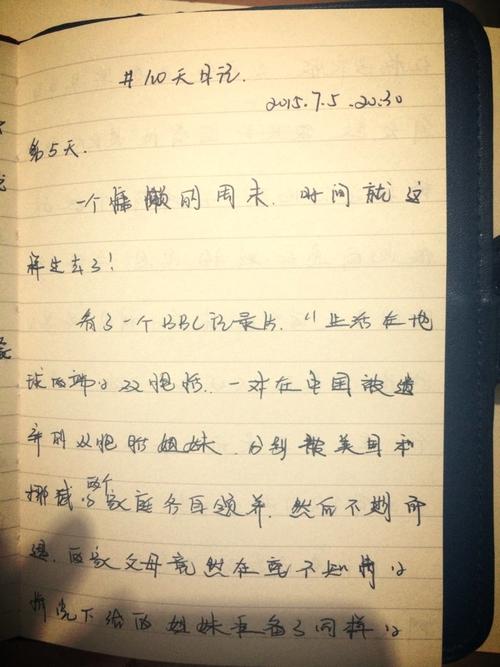 #10天日记.
2015.7.5.20:30
第5天.
一个慵懒的周末.时间就这
样过去了!
看了一个BBC记录片.“生活在地
球两端的双胞胎..一对在中国被遗
弃的双胞胎姐妹.分别被美国和
挪威的两个家庭各自领养.然后不期而
遇.两家父母竟然在毫不知情的
情况下给两姐妹准备了同样的